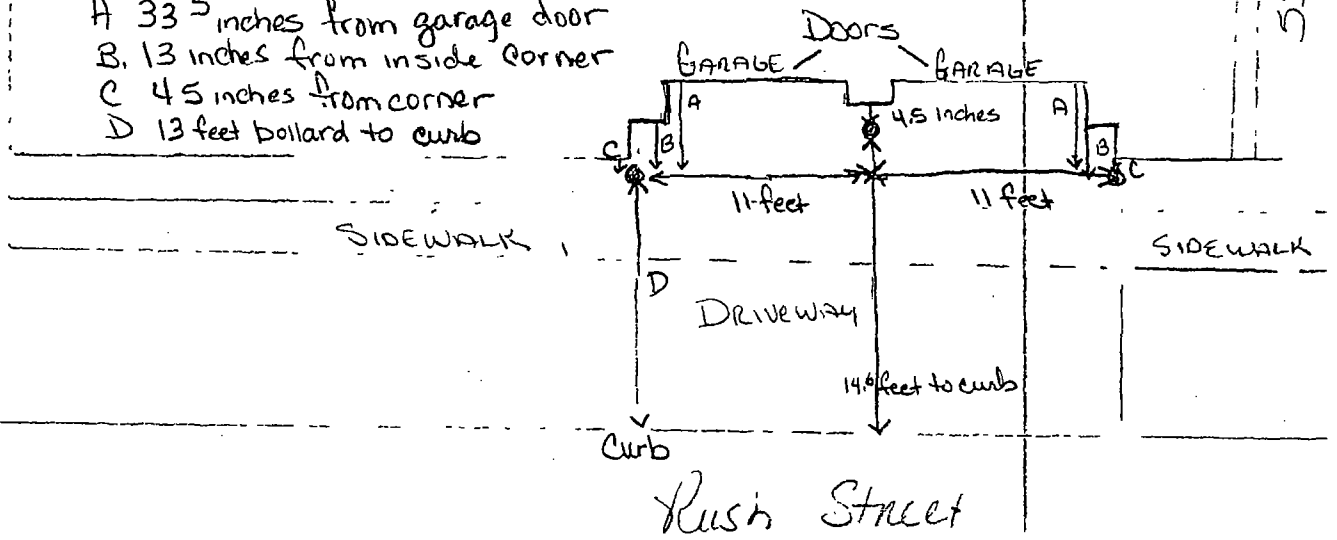 A 33⁵ inches from garage door
B. 13 inches from inside corner
C 45 inches from corner
D 13 feet bollard to curb
Doors
GARAGE
GARAGE
A
4.5 inches
A
B
B
C
C
11 feet
11 feet
SIDEWALK
SIDEWALK
D
DRIVEWAY
14.⁶ feet to curb
Curb
Rush Street